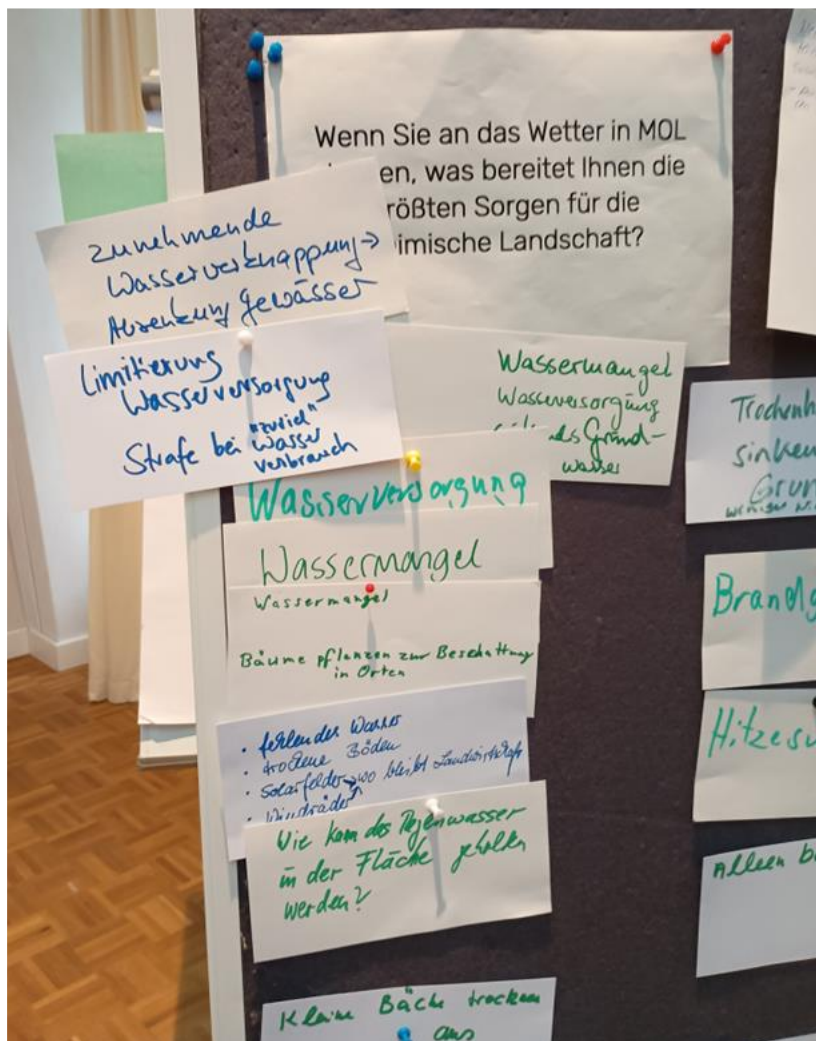 Wenn Sie an das Wetter in MOL
en, was bereitet Ihnen die
rößten Sorgen für die
imische Landschaft?
zunehmende
Wasserverknappung →
Absenkung Gewässer
Limitierung
Wasserversorgung
Strafe bei "zuviel"
Wasser
verbrauch
Wassermangel
Wasserversorgung
Grund-
wasser
Wasserversorgung
Wassermangel
Wassermangel
Bäume pflanzen zur Beschattung
in Orten
· fehlendes Wasser
· trockene Böden
· Solarfelder → wo bleibt Landwirtschaft
· Windräder
Wie kann das Regenwasser
in der Fläche gehalten
werden?
Kleine Bäche trocknen
aus
Trockenh
sinken
Grun
Brandg
Hitzesu
Alleen b